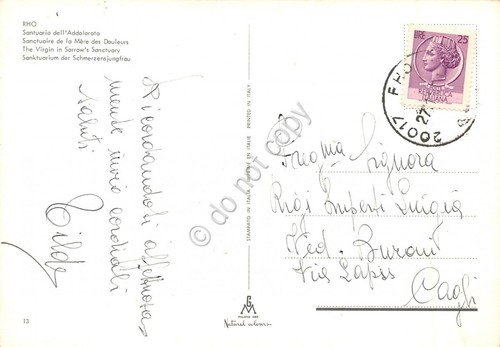 RHO
Santuario dell'Addolorata
Sanctuaire de la Mère des Douleurs
The Virgin in Sorrow's Sanctuary
Sanktuarium der Schmerzensjungfrau
Ricordandoti affettuosa
mente invio cordiali
saluti
Tilde
STAMPATO IN ITALIA - IMPRIMÉ EN ITALIE - PRINTED IN ITALY
do not copy
LIRE 25
20017 RHO
27
Preg.ma Signora
Luigia
Ved. Burani
Via
Cagli
MILANO
Natural colours
13